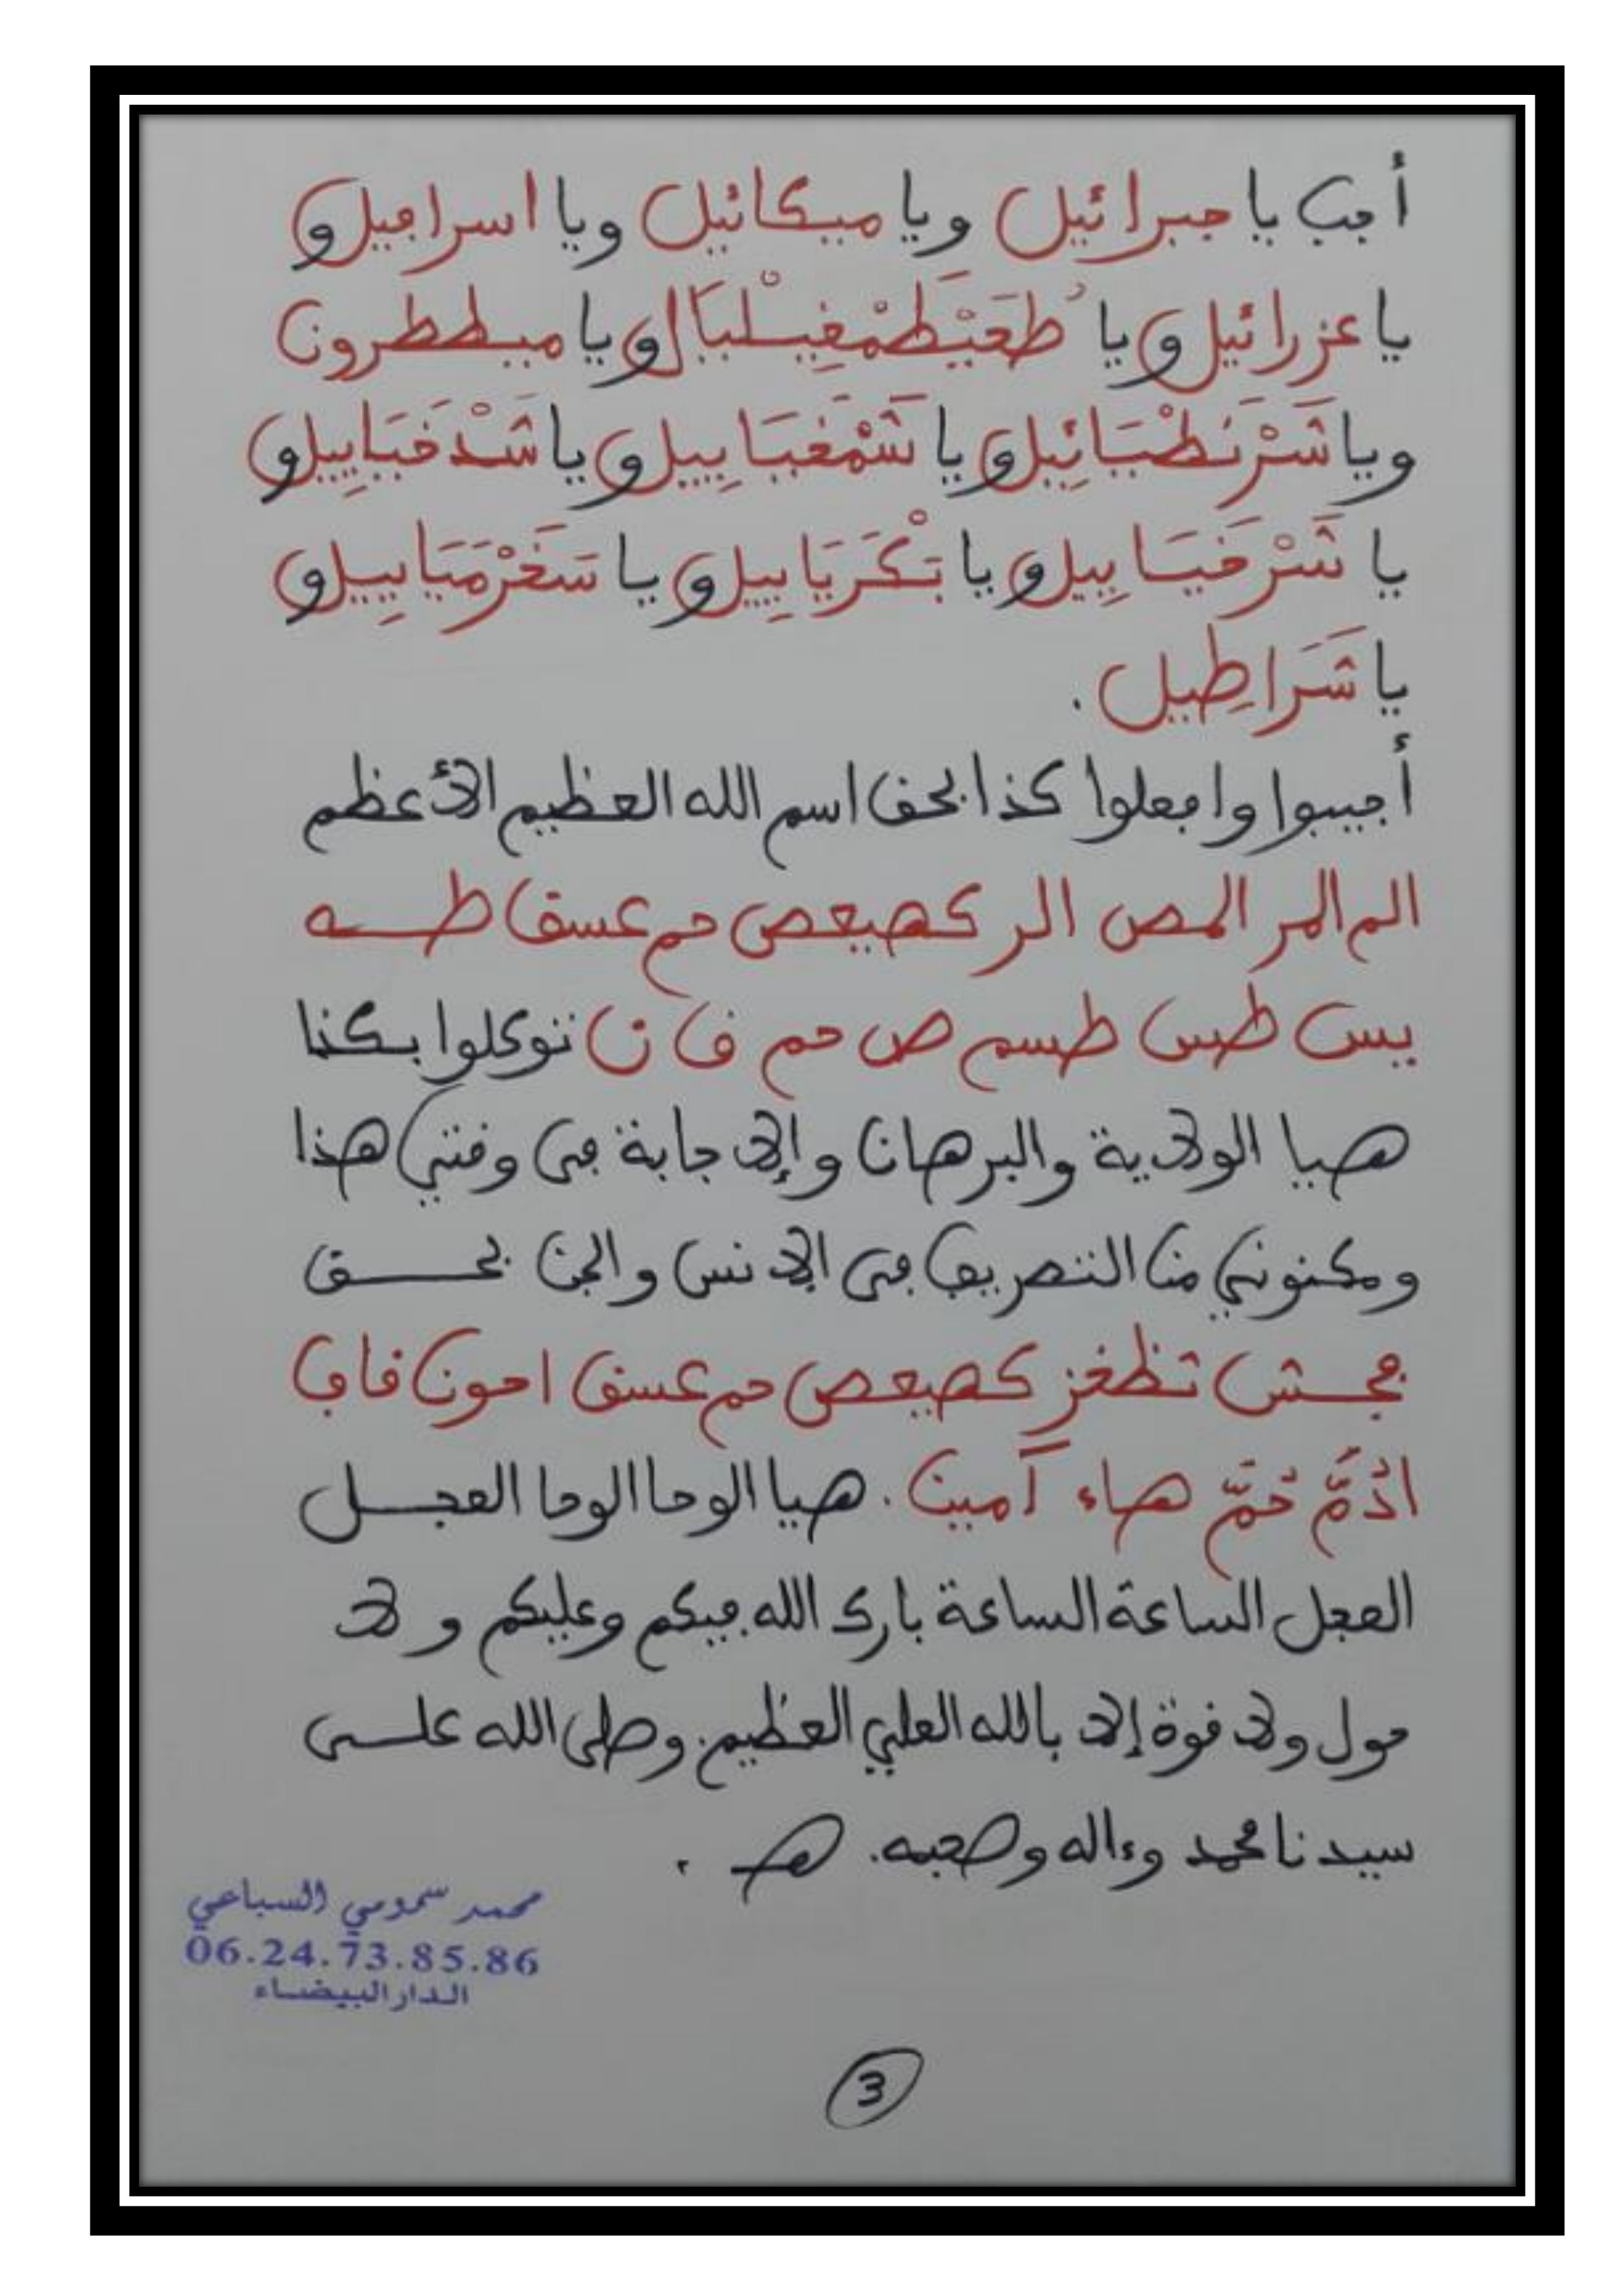 أجب يا جبرائيل ويا ميكائيل ويا اسرافيل و
يا عزرائيل ويا ويا ميططرون
ويا شَرْنَطْيَائِيل ويا شَمْغَيَايِيل ويا شَدْخَيَايِيل و
يا شَرْخَيَايِيل ويا بَكْرَيَايِيل ويا سَخَرْمَيَايِيل و
يا شَرَاطِيل .
أجيبوا وافعلوا كذا بحق اسم الله العظيم الأعظم
الم المر المص الر كهيعص حم عسق طـــه
يس طس طسم ص حم ق ن توكلوا بكذا
هيا الولاية والبرهان والإجابة في وقتي هذا
ومكنوني من التصريف في الإنس والجن بحـــق
فجـــش تظخز كهيعص حم عسق احون قاف
ادُمَّ حُمَّ هاء آمين . هيا الوحا الوحا العجـــل
العجل الساعة الساعة بارك الله فيكم وعليكم ولا
حول ولا قوة إلا بالله العلي العظيم . وصلى الله علـــى
سيدنا محمد وءاله وصحبه . هـ .
محمد سمومي السباعي
06.24.73.85.86
الدار البيضاء
3